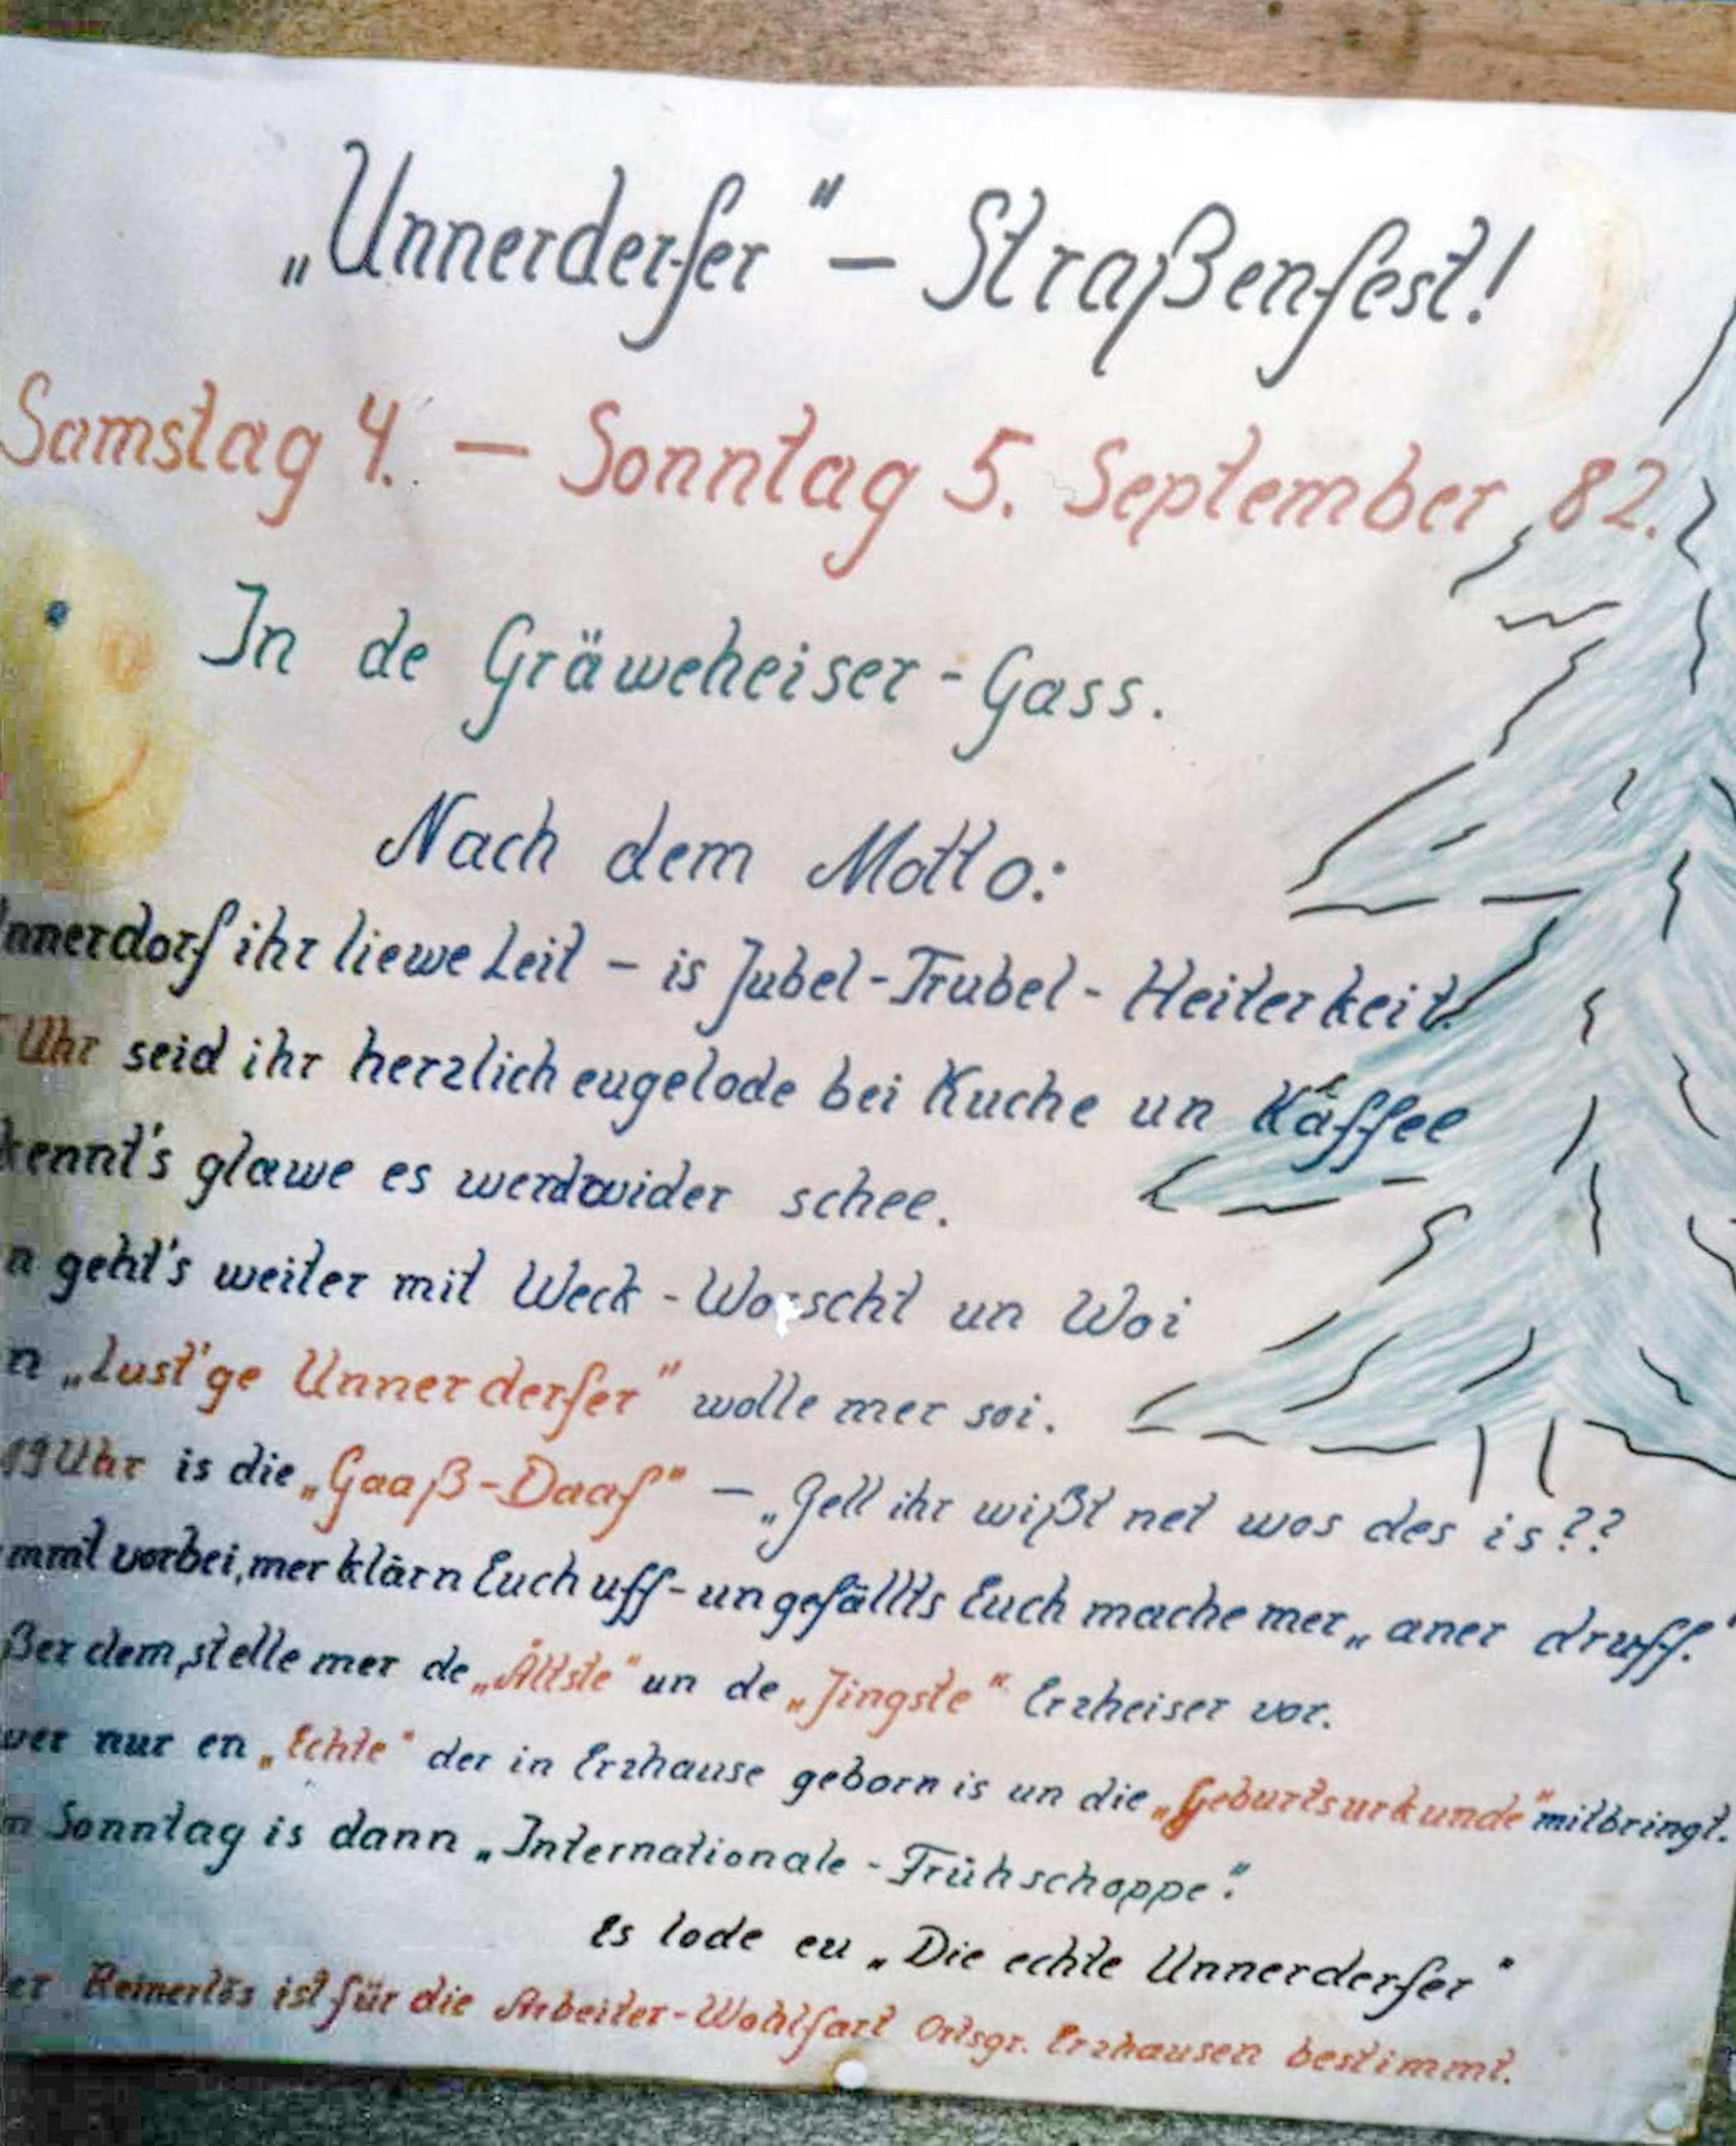 „Unnerderfer" – Straßenfest!
Samstag 4. – Sonntag 5. September 82.
In de Gräweheiser - Gass.
Nach dem Motto:
nnerdorf ihr liewe Leit – is Jubel - Trubel - Heiterkeit.
Uhr seid ihr herzlich eugelode bei Kuche un Kaffee
kennt's glawe es werd wider schee.
n geht's weiter mit Weck - Worscht un Woi
n „Lust'ge Unnerderfer" wolle mer soi.
19 Uhr is die „Gaaß-Daaf" – „Gell ihr wißt net wos des is??
mmt vorbei, mer klärn Euch uff - un gefällts Euch mache mer „aner druff."
ßer dem, stelle mer de „Ältste" un de „Jingste" Erzheiser vor.
wer nur en „Echte" der in Erzhause geborn is un die „Geburtsurkunde" mitbringt.
m Sonntag is dann „Internationale - Frühschoppe".
Es lode eu „Die echte Unnerderfer"
er Reinerlös ist für die Arbeiter-Wohlfart Ortsgr. Erzhausen bestimmt.